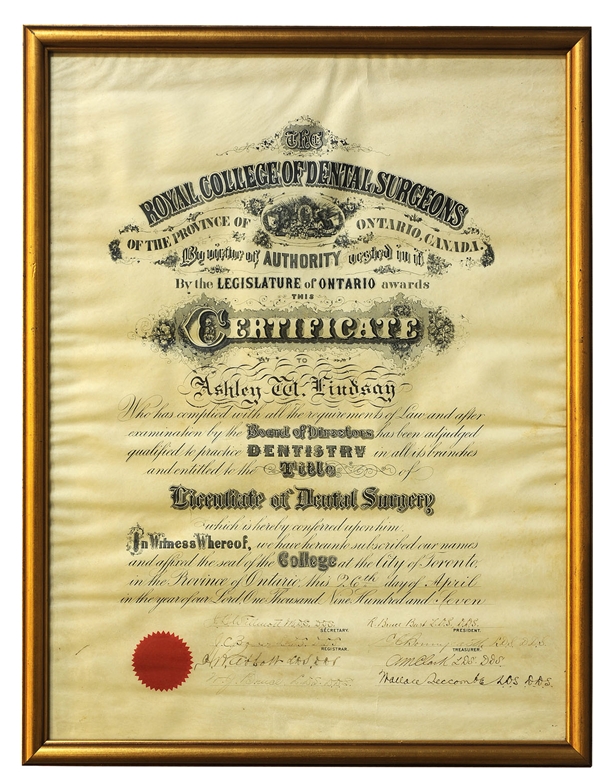 The
ROYAL COLLEGE OF DENTAL SURGEONS
OF THE PROVINCE OF ONTARIO, CANADA.
By virtue of AUTHORITY vested in it
By the LEGISLATURE of ONTARIO awards
THIS
CERTIFICATE
TO
Ashley W. Lindsay
Who has complied with all the requirements of Law and after
examination by the Board of Directors has been adjudged
qualified to practice DENTISTRY in all its branches
and entitled to the Title of
Licentiate of Dental Surgery
which is hereby conferred upon him.
In Witness Whereof, we have hereunto subscribed our names
and affixed the seal of the College at the City of Toronto
in the Province of Ontario this 26th day of April
in the year of our Lord One Thousand Nine Hundred and Seven
SECRETARY. PRESIDENT.
REGISTRAR. TREASURER.
Abbott LDS, DDS Clark LDS DDS.
Wallace Seccombe LDS D.D.S.